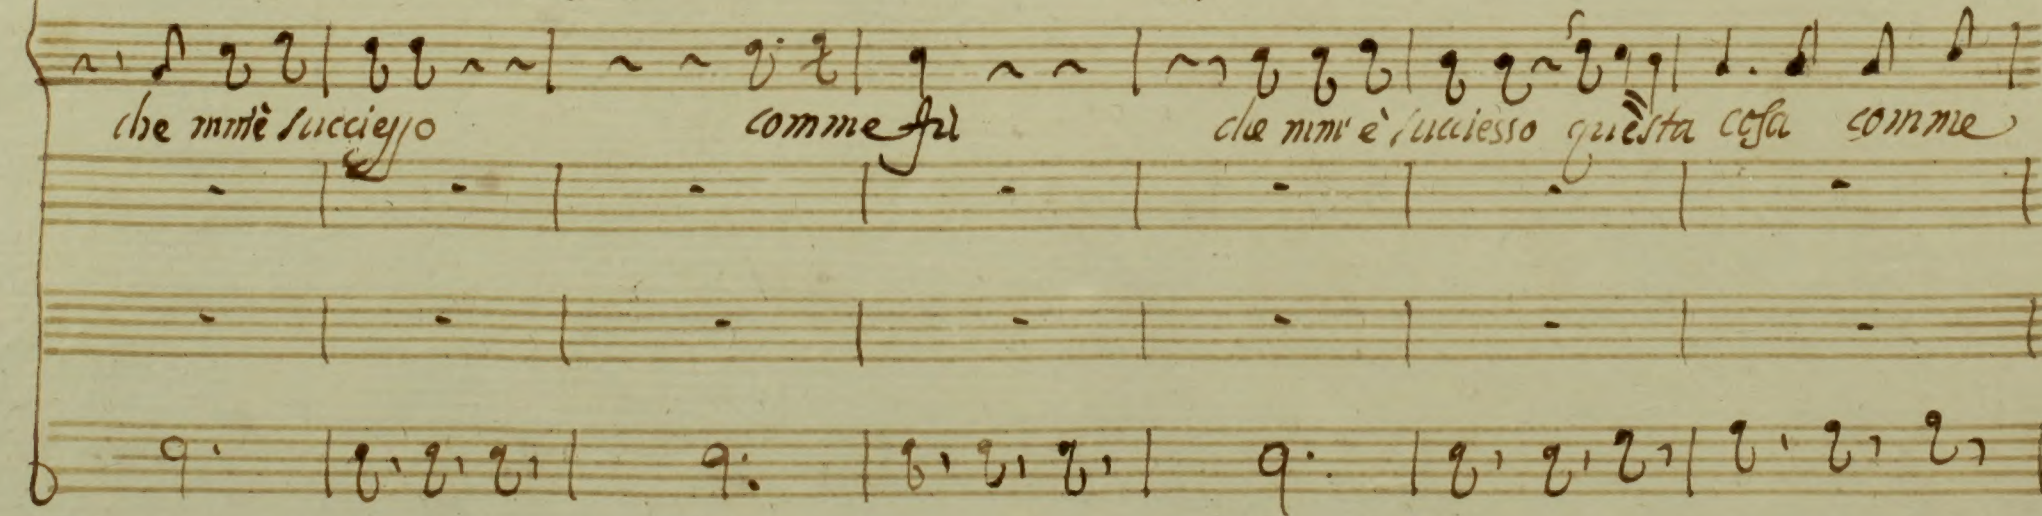 che mm'è succiesso comme fù che mm' è succiesso questa cosa comme